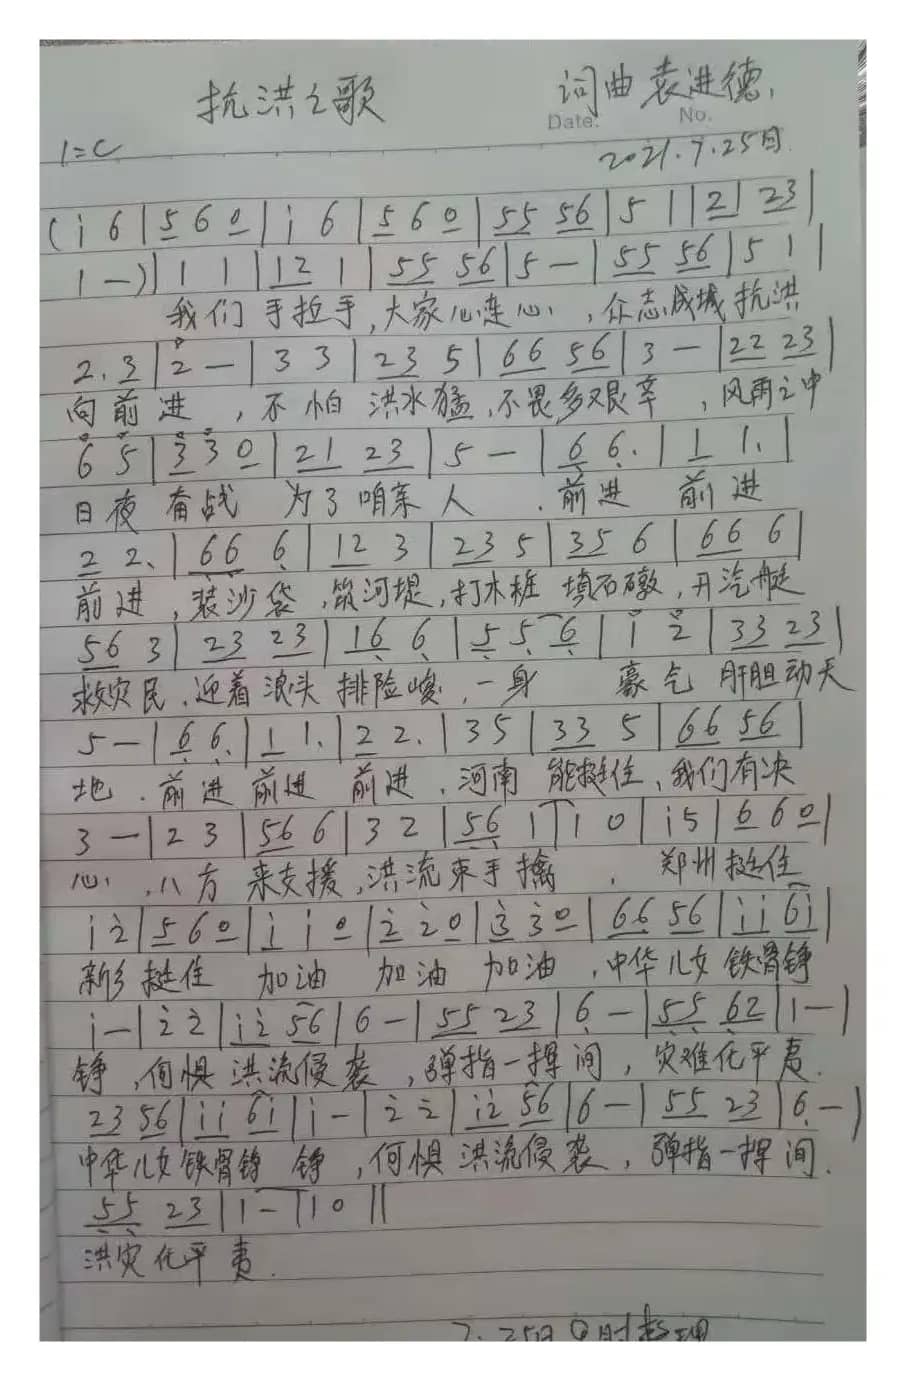 抗洪之歌 词曲袁进德
Date: No.
1=C 2021.7.25日
(i 6 | 5 6 0 | i 6 | 5 6 0 | 55 56 | 5 1 | 2 | 23 |
1 —) | 1 1 | 12 1 | 55 56 | 5 — | 55 56 | 5 1 |
我们 手拉手,大家心连心,众志成城抗洪
2. 3 | 2 — | 3 3 | 23 5 | 66 56 | 3 — | 22 23 |
向前进,不怕 洪水猛,不畏多艰辛,风雨之中
6 5 | 3 3 0 | 21 23 | 5 — | 6 6. | 1 1. |
日夜奋战 为了咱亲人.前进 前进
2 2. | 66 6 | 12 3 | 23 5 | 35 6 | 66 6 |
前进,装沙袋,筑河堤,打木桩 填石礅,开汽艇
56 3 | 23 23 | 16 6 | 5 5 6 | i 2 | 33 23 |
救灾民.迎着浪头排险峻.一身 豪气 肝胆动天
5 — | 6 6. | 1 1. | 2 2. | 3 5 | 33 5 | 66 56 |
地.前进前进 前进.河南 能挺住,我们有决
3 — | 2 3 | 56 6 | 3 2 | 56 1 | 1 0 | i5 | 6 6 0 |
心,八方 来支援,洪流束手擒.郑州挺住
i 2 | 5 6 0 | i i 0 | 2 2 0 | 3 3 0 | 66 56 | i i 6i |
新乡挺住 加油 加油 加油.中华儿女 铁骨铮
i — | 2 2 | i2 56 | 6 — | 55 23 | 6 — | 55 62 | 1 — |
铮,何惧 洪流侵袭,弹指一挥间,灾难化平夷.
23 56 | i i 6i | i — | 2 2 | i2 56 | 6 — | 55 23 | 6 — )
中华儿女铁骨铮 铮,何惧 洪流侵袭,弹指一挥间.
55 23 | 1 — | 1 0 ||
洪灾化平夷.
7.25日 时整理